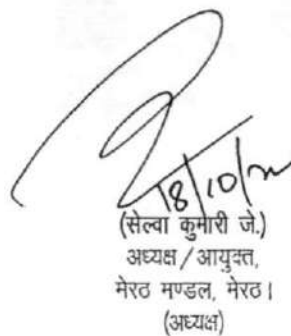 18/10/
(सेल्वा कुमारी जे.)
अध्यक्ष / आयुक्त,
मेरठ मण्डल, मेरठ।
(अध्यक्ष)